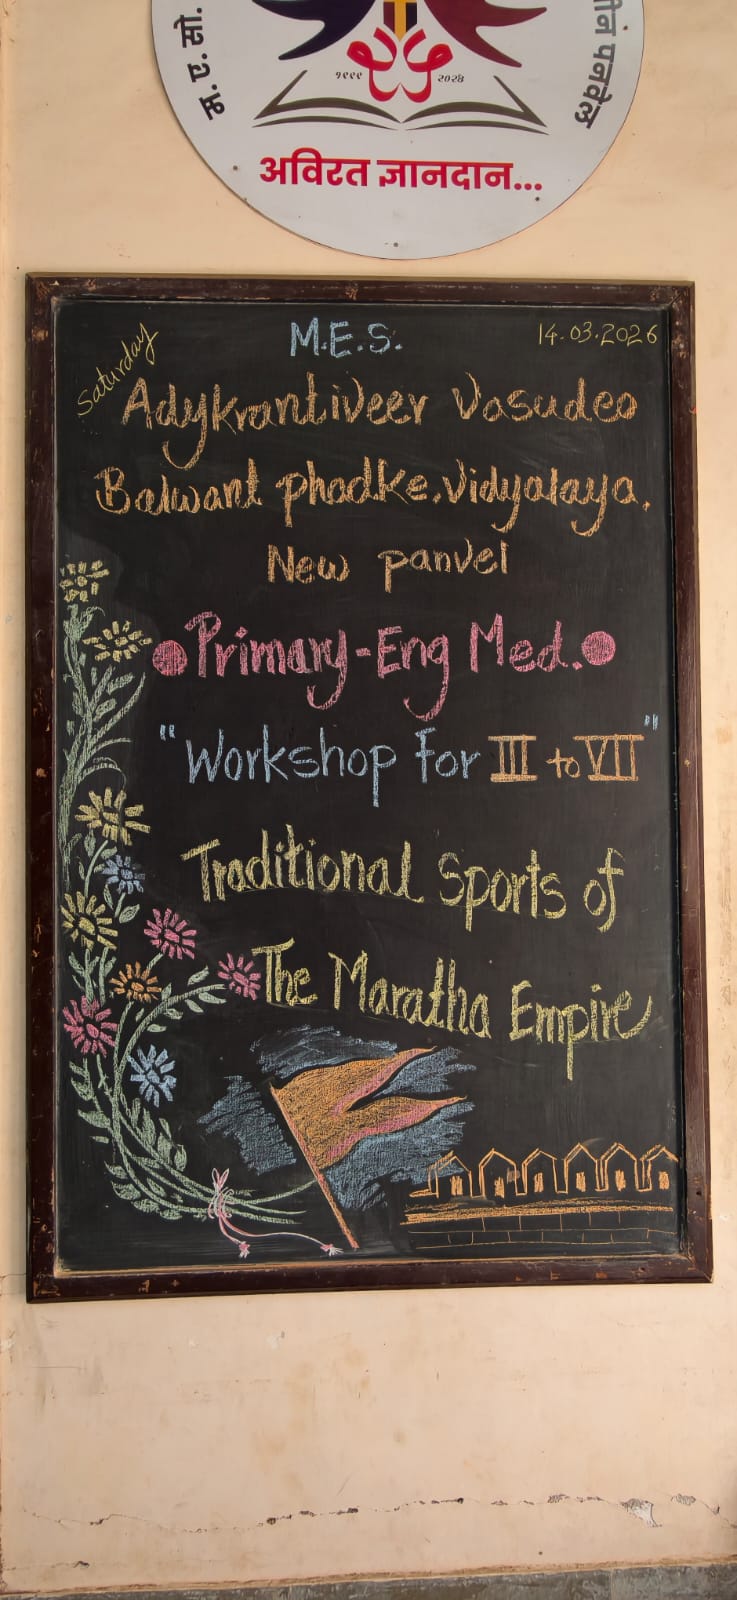 म. ए. सो.
१९९९
२०२४
अविरत ज्ञानदान...
Saturday
M.E.S.
14.03.2026
Adykrantiveer Vasudeo
Balwant phadke. Vidyalaya.
New panvel
Primary-Eng Med.
"Workshop For III to VII"
Traditional Sports of
The Maratha Empire